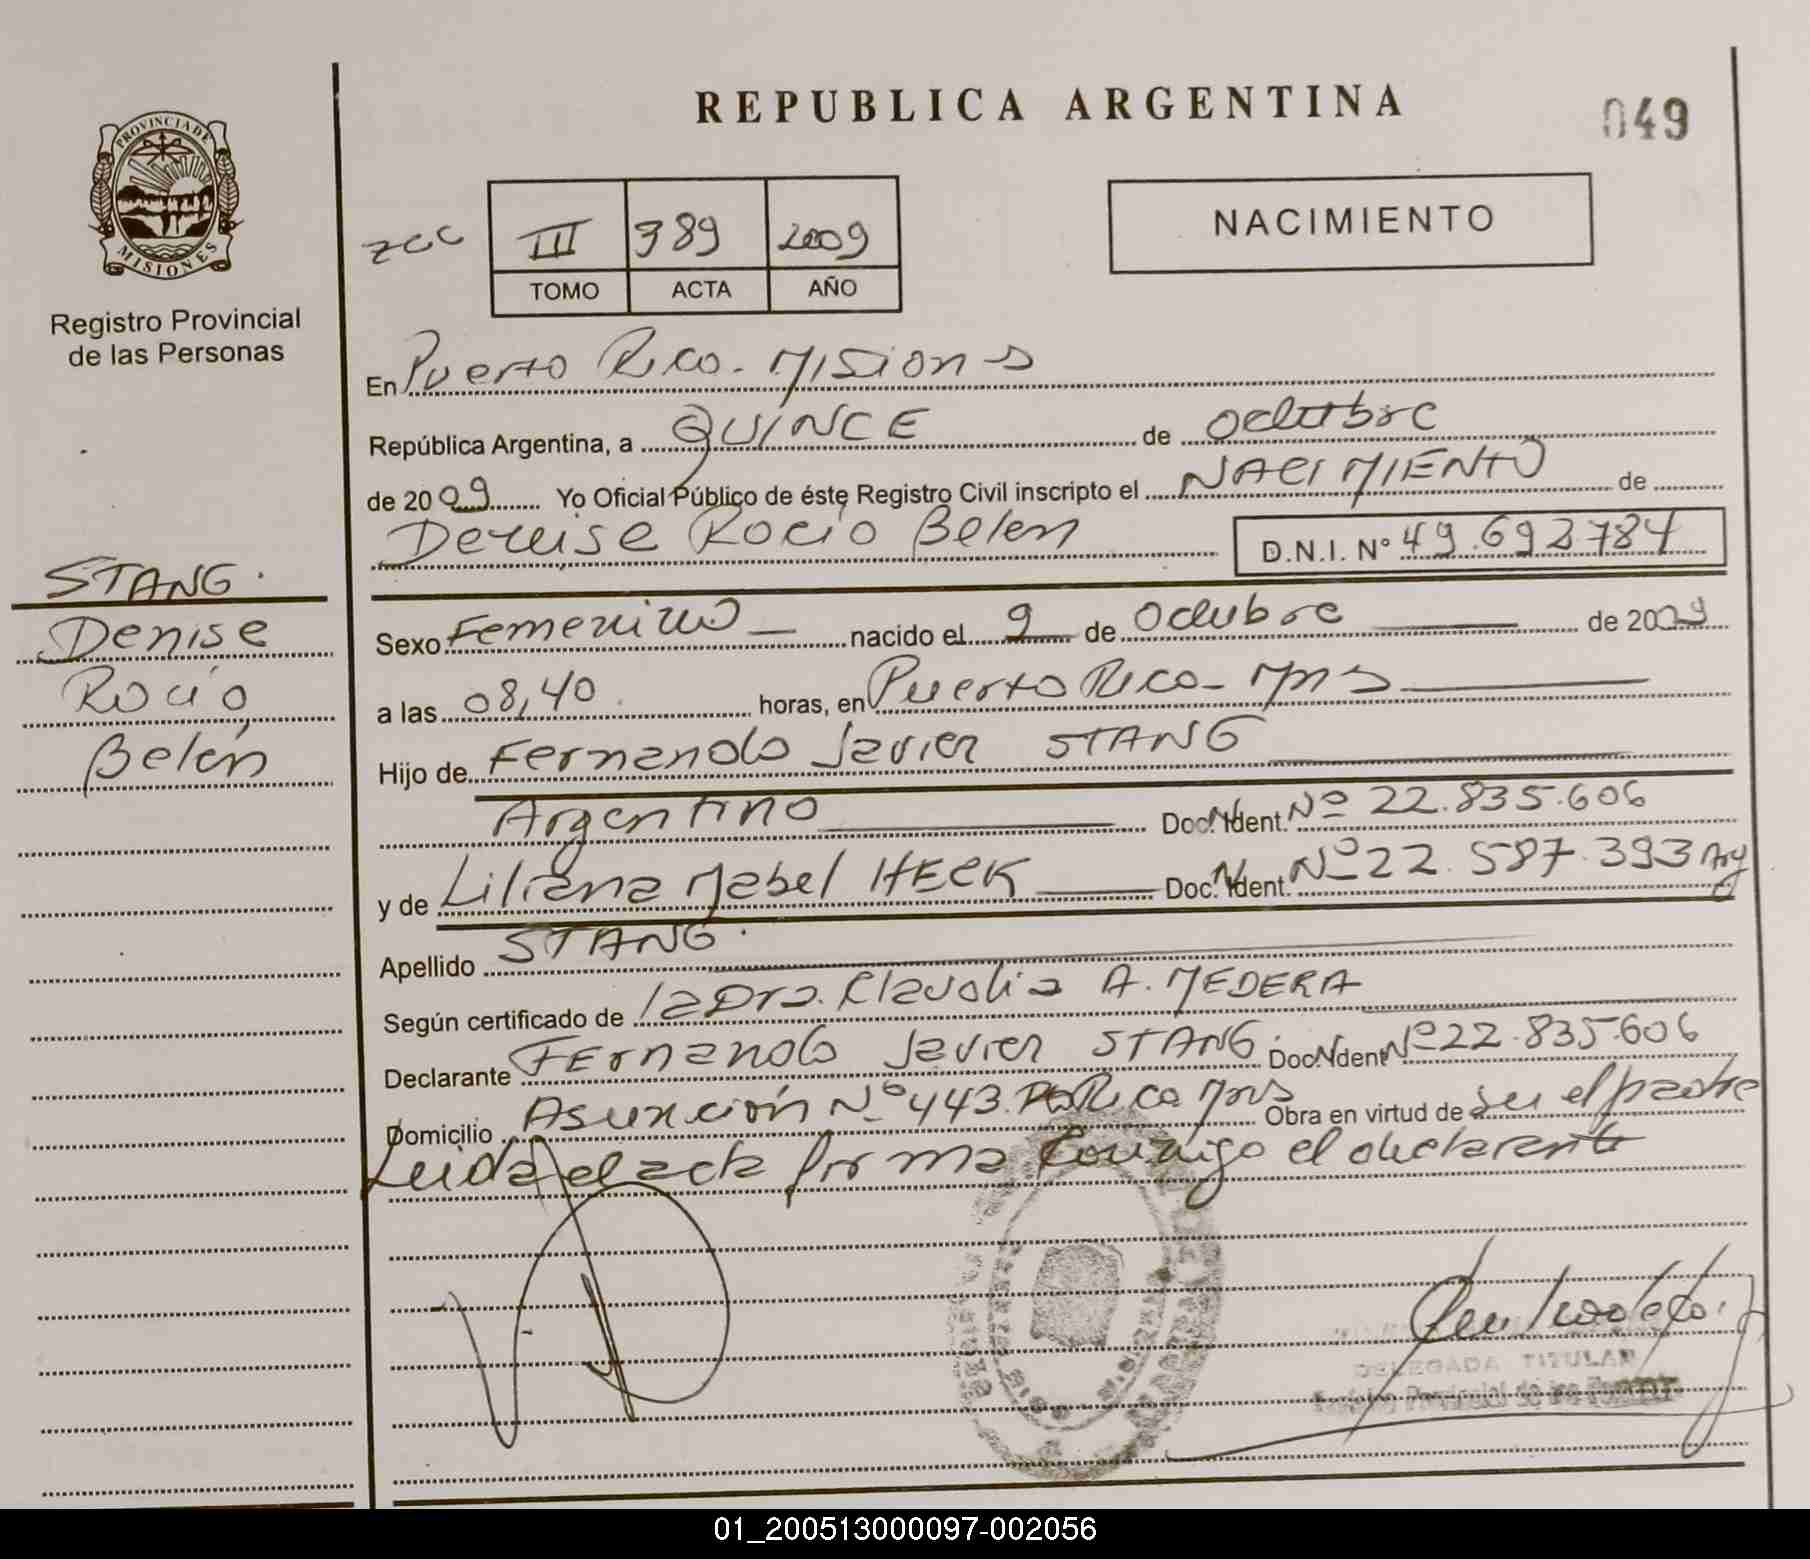 REPUBLICA ARGENTINA
049
PROVINCIA DE
MISIONES
Registro Provincial
de las Personas
zcc
III 389 2009
TOMO ACTA AÑO
NACIMIENTO
En Puerto Rico - Misiones
República Argentina, a QUINCE de octubre
de 2009 Yo Oficial Público de éste Registro Civil inscripto el NACIMIENTO de
Denise Rocío Belen D.N.I. Nº 49.692784
STANG.
Denise
Rocío
Belén
Sexo Femenino nacido el 9 de Octubre de 2009
a las 08,40 horas, en Puerto Rico - Mns
Hijo de Fernando Javier STANG
Argentino Doc. Ident. Nº 22.835.606
y de Liliana Mabel HECK Doc. Ident. Nº 22.587.393 Arg
Apellido STANG.
Según certificado de la Dra. Claudia A. MEDERA
Declarante FErnando Javier STANG. Doc. Ident Nº 22.835.606
Domicilio Asunción Nº 443. Pto Rico Mns Obra en virtud de ser el padre
Leida el acta firma conmigo el declarante
DELEGADA TITULAR
Registro Provincial de las Personas
01_200513000097-002056